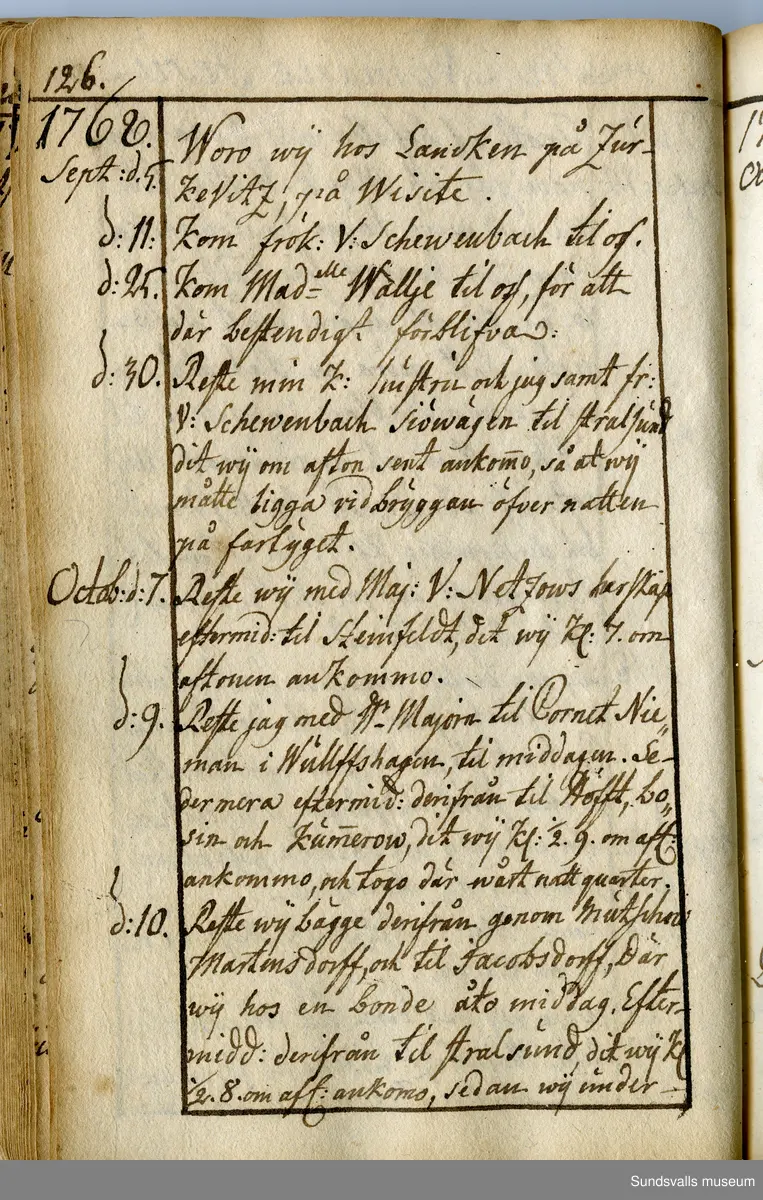 126.
1768.
Sept: d. 5. Woro wÿ hos Lancken på Zur-
kevitz, på Wisite.
d: 11: Kom frök: V: Schewenbach til oss.
d: 25. Kom Mad=elle Wallje til oss, för att
där bestendigt förblifva:
d: 30. Reste min K: hustru och jag samt fr:
V: Schewenbach siöwägen til stralsund
dit wÿ om afton sent ankom̄o, så at wÿ
måtte ligga vid bryggan öfver natten
på fartÿget.
Octob: d: 7. Reste wÿ med Maj: V: Netzows harskap
eftermid: til Steinfeldt, dit wÿ Kl: 7. om
aftonen ankommo.
d: 9. Reste jag med Hr Majorn til Cornet Nie„
man i Wulffshagen, til middagen. Se-
dermera eftermid: derifrån til Höfft, bo„
sin och Kum̄erow, dit wÿ Kl: ½ 9. om aft:
ankommo, och togo där wårt nattquarter.
d: 10. Reste wÿ bägge derifrån genom Mützchow
Martensdorff, och til Jacobsdorff, Där
wÿ hos en bonde åto middag. Efter-
midd: derifrån til stralsund, dit wÿ Kl
½ 8. om aft: ankomo, sedan wÿ under-
17
Sundsvalls museum